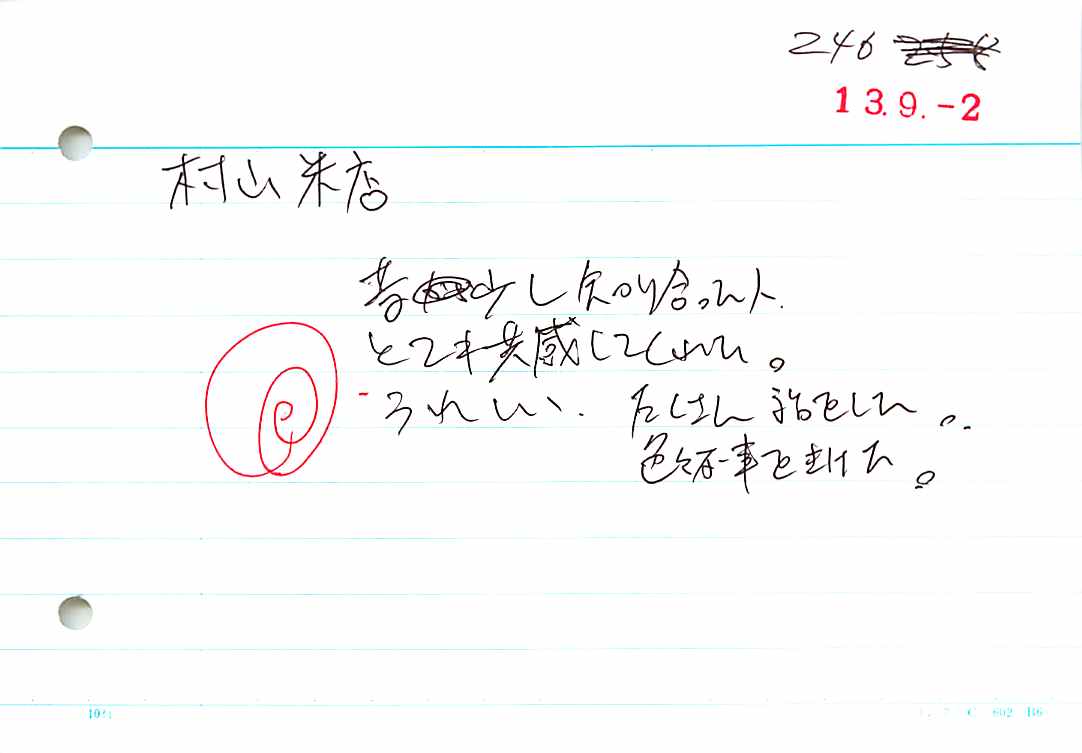 246
13.9.-2
村山米店
昔少し知り合った人
とても共感してくれた。
うれしい、たくさん話をした。
色々な事を書けた。